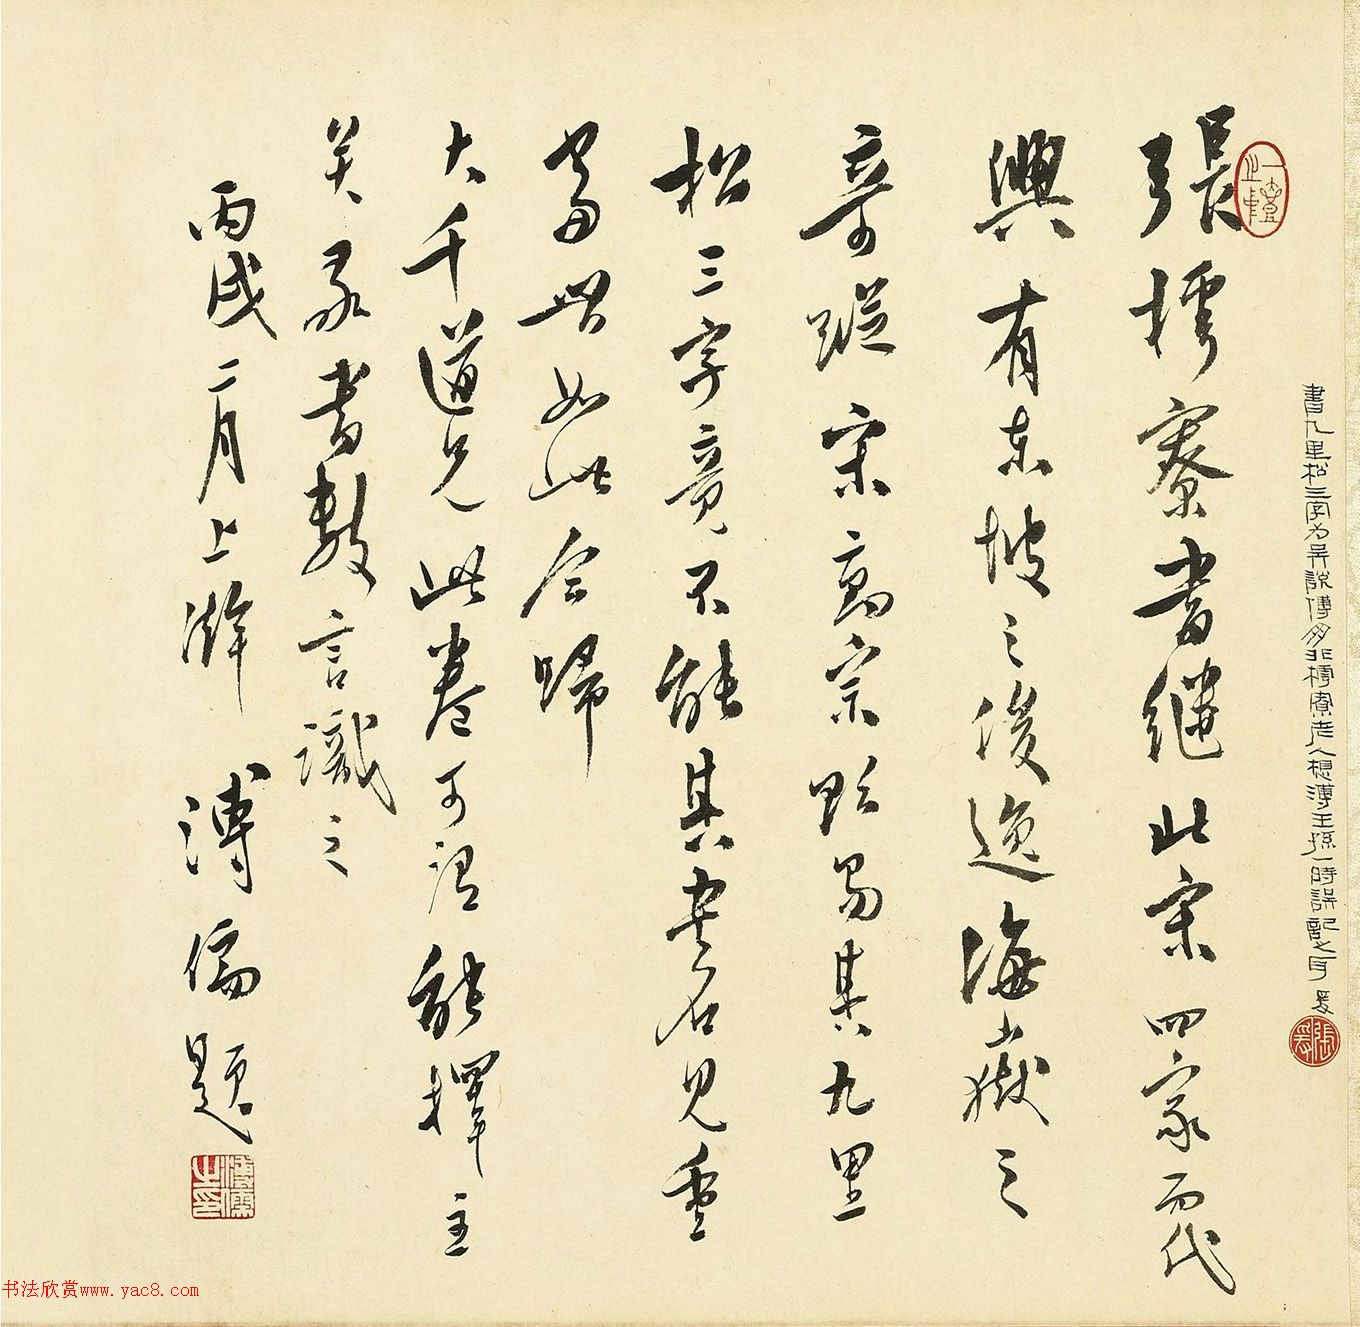 書九里松三字为吴說傅朋非樗寮老人想溥王孫一時誤記之耳 爰
張爰
張樗寮書繼北宋四家而代
興有東坡之俊逸海嶽之
奇蹤宋高宗欲易其九里
松三字竟不能其書名見重
當世如此今歸
大千道兄此卷可謂能擇主
矣承書數言識之
丙戌二月上澣 溥儒題
溥儒之印
书法欣赏www.yac8.com